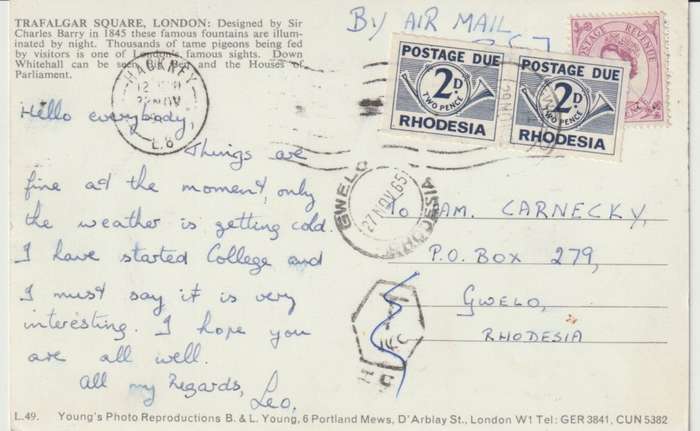 TRAFALGAR SQUARE, LONDON: Designed by Sir
Charles Barry in 1845 these famous fountains are illum-
inated by night. Thousands of tame pigeons being fed
by visitors is one of London's famous sights. Down
Whitehall can be seen Big Ben and the Houses of
Parliament.
BY AIR MAIL
REVENUE
POSTAGE DUE
2D.
TWO PENCE
RHODESIA
POSTAGE DUE
2D.
TWO PENCE
RHODESIA
HACKNEY
NOV
E.8
GWELO
27 NOV 65
RHODESIA
Hello everybody,
Things are
fine at the moment, only
the weather is getting cold.
I have started College and
I must say it is very
interesting. I hope you
are all well.
All my Regards,
Leo.
To AM. CARNECKY,
P.O. BOX 279,
GWELO,
RHODESIA
L.49. Young's Photo Reproductions B. & L. Young, 6 Portland Mews, D'Arblay St., London W1 Tel: GER 3841, CUN 5382